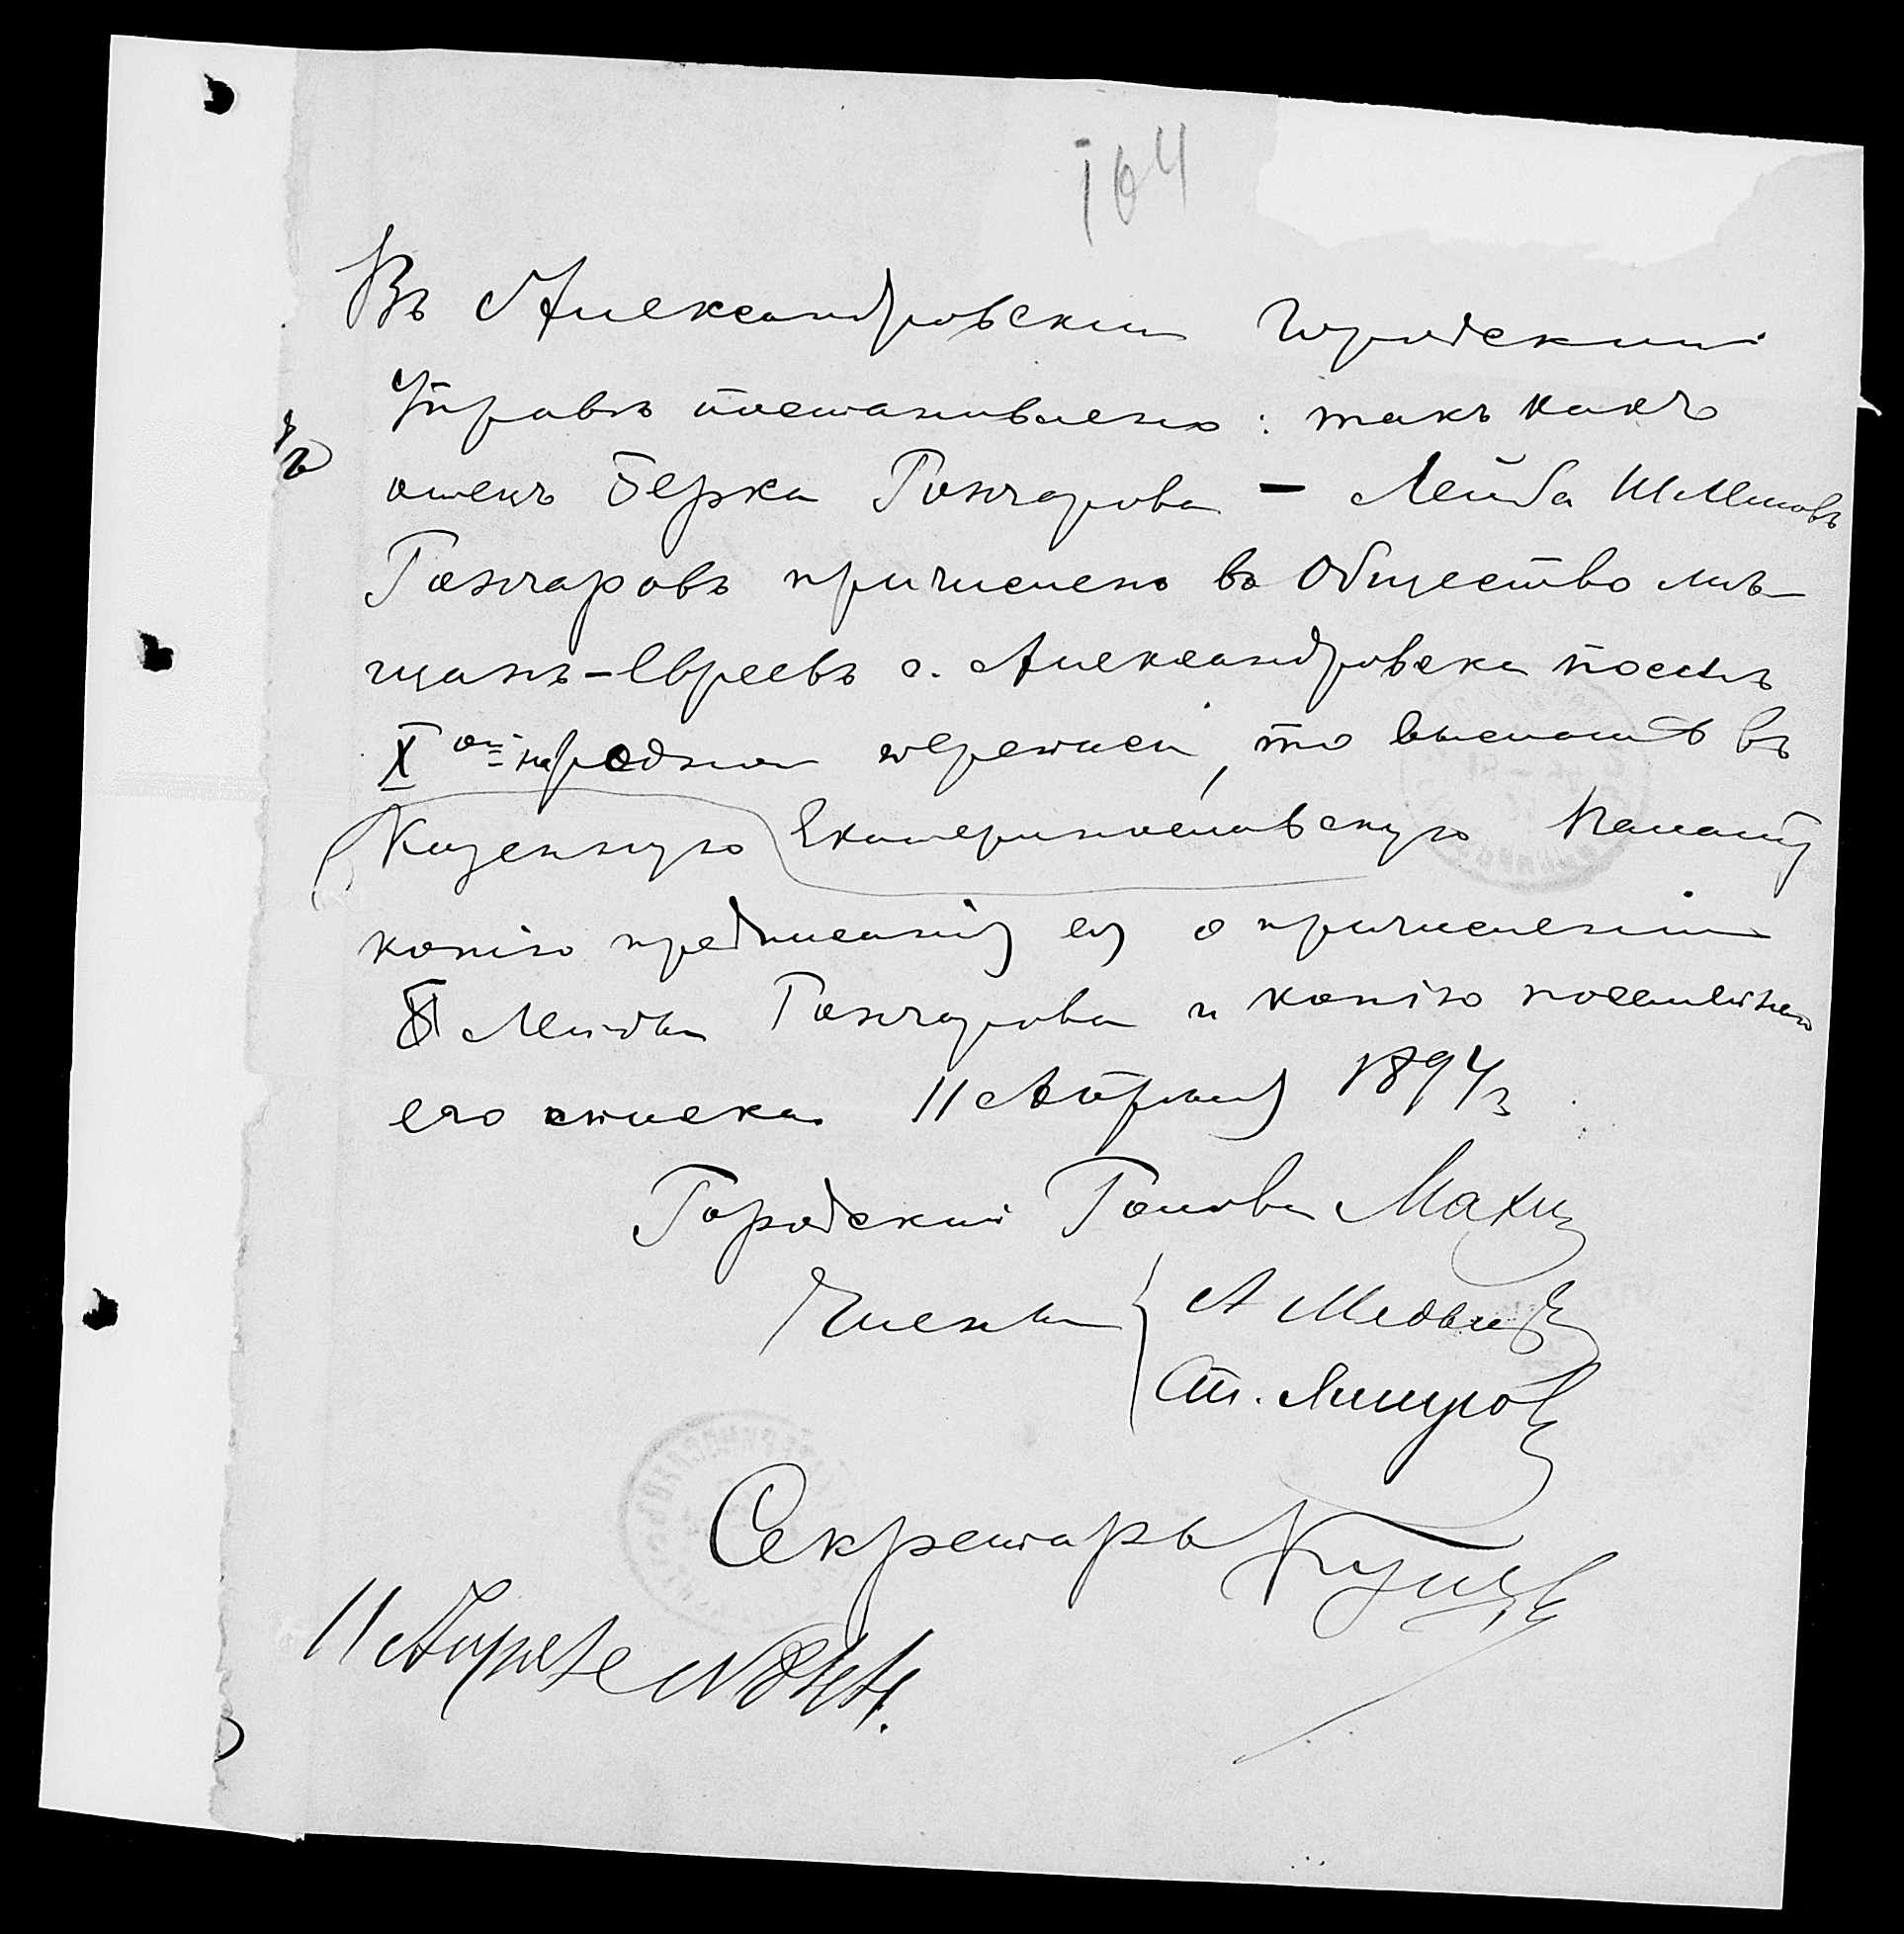 104
Въ Александровской Городской
Управѣ постановлено: такъ какъ
отецъ Берка Гончарова — Лейба Шлемовъ
Гончаровъ причисленъ въ Общество мѣ-
щанъ-Евреевъ г. Александровска послѣ
X ой народной переписи, то выслать въ
Казенную Екатеринославскую Палату
копію предписанія ея о причисленіи
Лейбы Гончарова и копію посемейнаго
его списка. 11 Апрѣля 1894 г.
Городской Голова Махн
Члены А Медвед
Ст. Лищуров
Секретарь
11 Апреля №